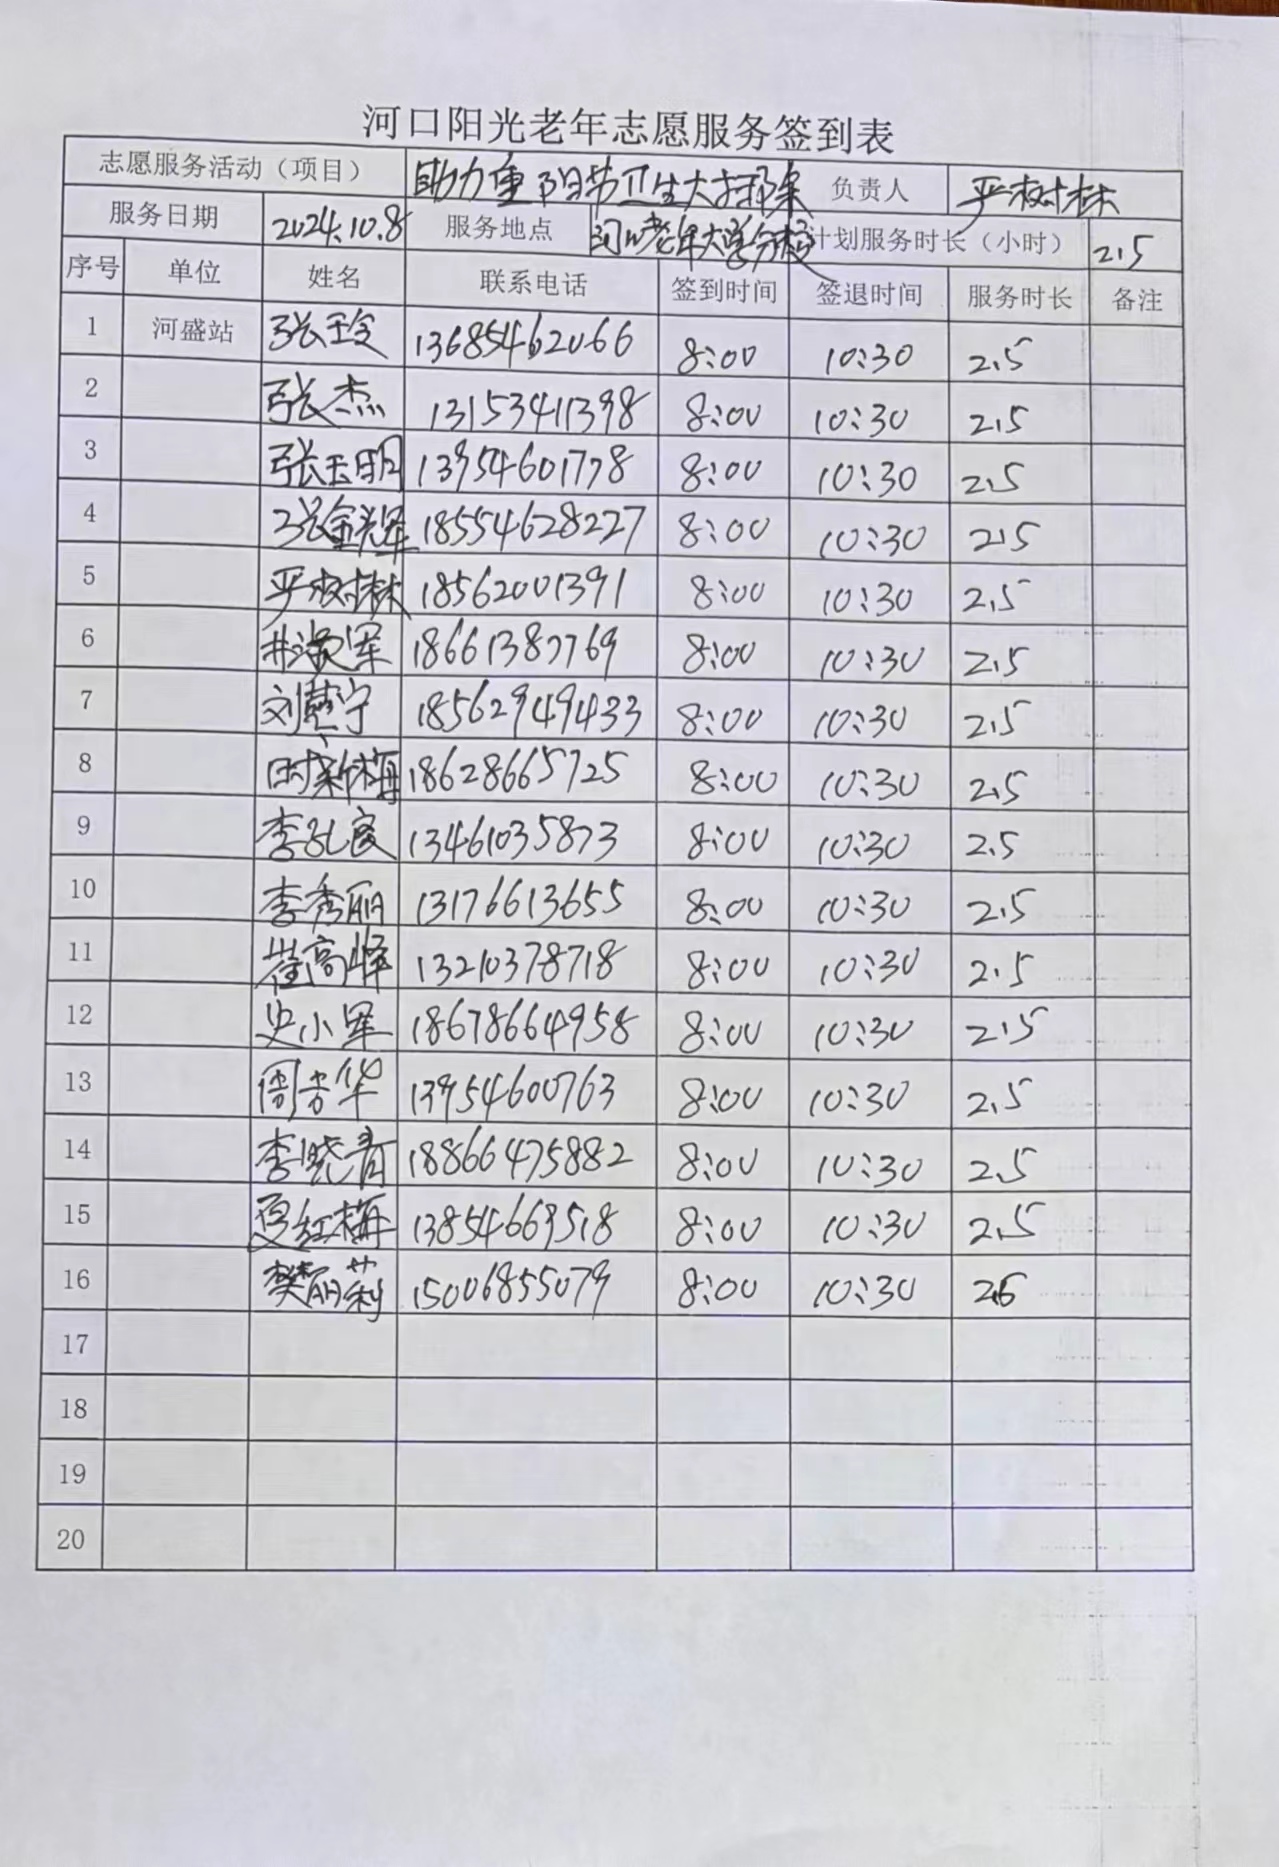 河口阳光老年志愿服务签到表
志愿服务活动（项目） 助力重阳节卫生大扫除 负责人 严树林
服务日期 2024.10.8 服务地点 河口老年大学分校 计划服务时长（小时） 2.5
序号 单位 姓名 联系电话 签到时间 签退时间 服务时长 备注
1 河盛站 张玲 13685462066 8:00 10:30 2.5
2 张杰 13153411398 8:00 10:30 2.5
3 张玉明 13954601778 8:00 10:30 2.5
4 张金辉 18554628227 8:00 10:30 2.5
5 严树林 18562001391 8:00 10:30 2.5
6 18661387769 8:00 10:30 2.5
7 刘慧宁 18562949433 8:00 10:30 2.5
8 时新梅 18628665725 8:00 10:30 2.5
9 李孔良 13461035873 8:00 10:30 2.5
10 李秀丽 13176613655 8:00 10:30 2.5
11 崔高峰 13210378718 8:00 10:30 2.5
12 史小军 18678664958 8:00 10:30 2.5
13 周芳华 13954600763 8:00 10:30 2.5
14 李晓青 18866475882 8:00 10:30 2.5
15 夏红梅 13854669518 8:00 10:30 2.5
16 樊丽莉 15006855079 8:00 10:30 2.5
17
18
19
20